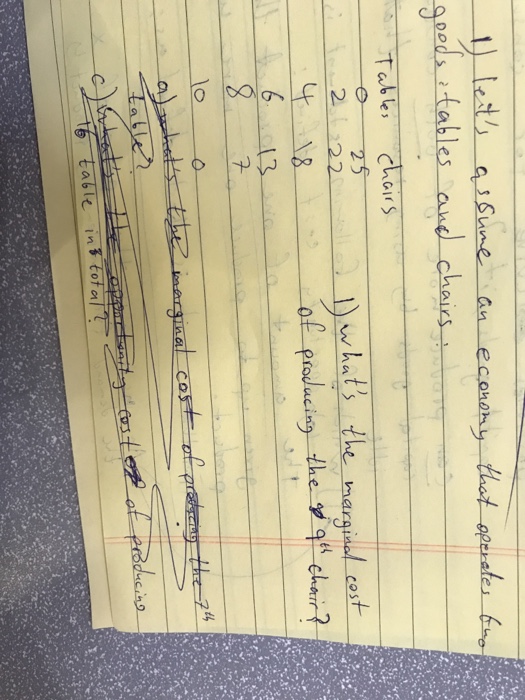 1) let's assume an economy that operates two
goods: tables and chairs.
Tables chairs
0 25
2 22
4 18
6 13
8 7
10 0
1) what's the marginal cost
of producing the 9th chair?
a) what's the marginal cost of producing the 7th
table?
c) what's the opportunity cost of producing
16 table in total?